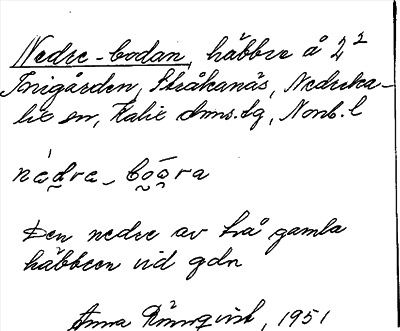 Nedre-bodan, häbbre å 2²
Inigården, Stråkanäs, Nederka-
lix sn, Kalix dms.tg, Nonb.l
nädra_boåra
Den nedre av två gamla
häbbren vid gdn
Anna Rönnqvist, 1951